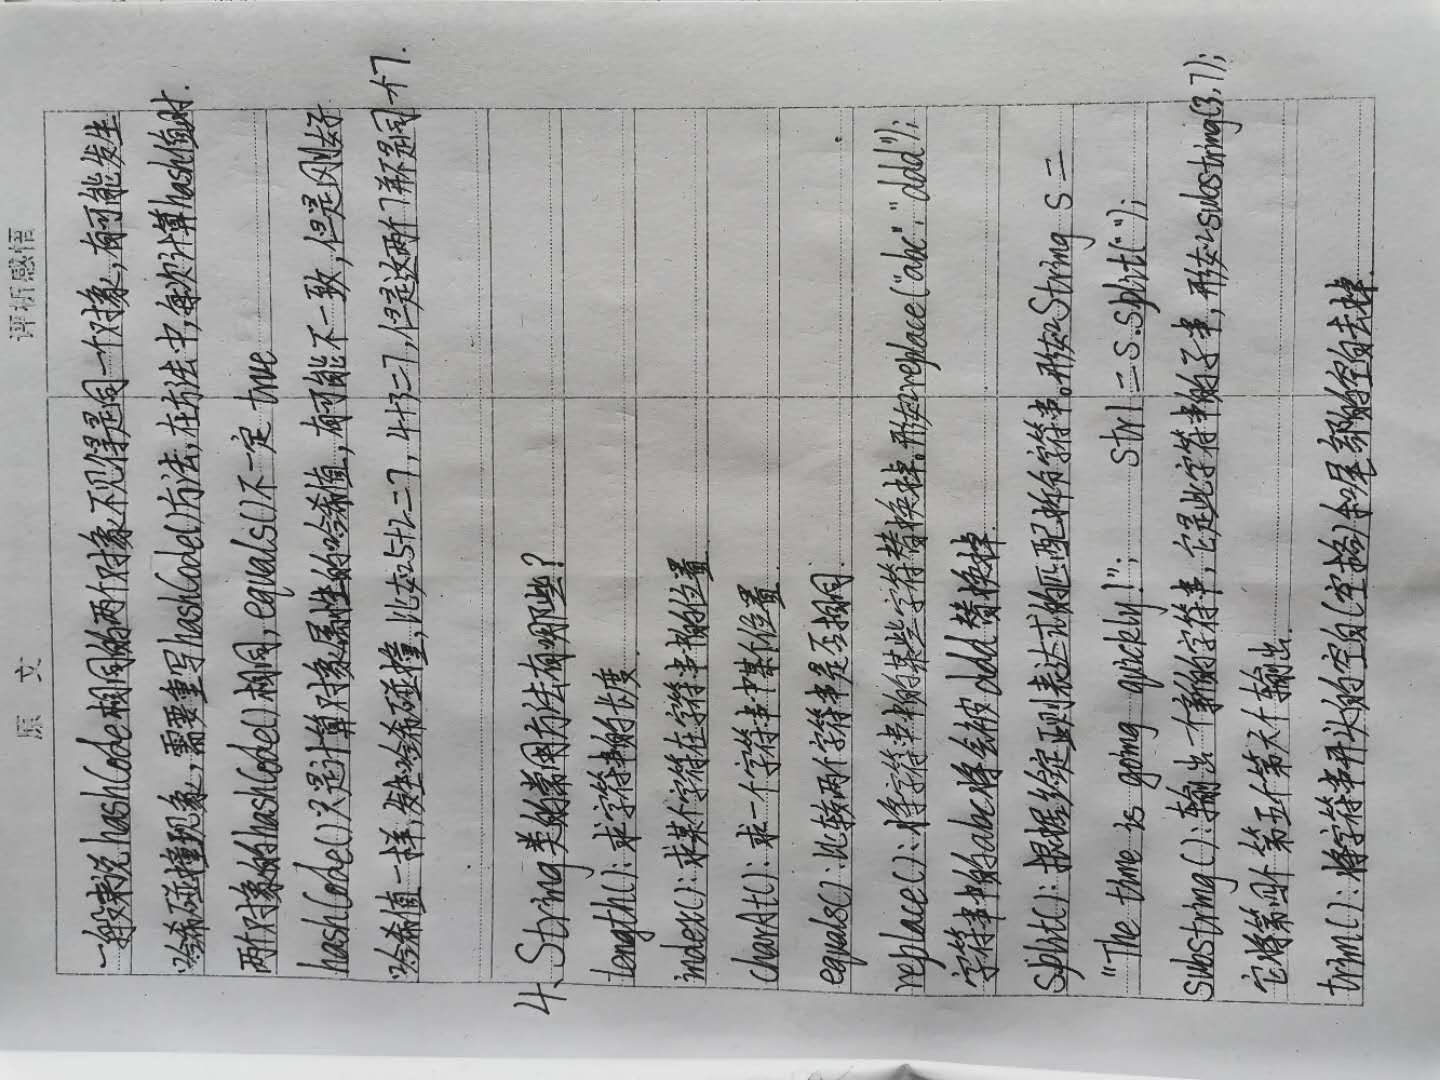 原 文 评析感悟
一般来说hashCode相同的两个对象不见得是同一个对象,有可能发生
哈希碰撞现象,需要重写hashCode()方法,在方法中,每次计算hash值时.
两个对象的hashCode()相同,equals()不一定true
hashCode()只是计算对象属性的哈希值,有可能不一致,但是刚好
哈希值一样,发生哈希碰撞,比如5+2=7,4+3=7,但是这两个7并不是同一个7.
4、String类的常用方法有哪些?
length():求字符串的长度.
index():求某个字符在字符串中的位置
charAt():求一个字符串中某位置
equals():比较两个字符串是否相同.
replace():将字符串中的某些字符替换掉。形如replace("abc","ddd");
字符串中的abc将会被ddd替换掉.
split():根据给定正则表达式的匹配拆分字符串。形如String s =
"The time is going quickly!"; str1 = s.split(" ");
substring():输出一个新的字符串,它是此字符串的子串,形如substring(3,7);
它将第四个第五个第六个输出.
trim():将字符串开头的空白(空格)和尾部的空白去掉.